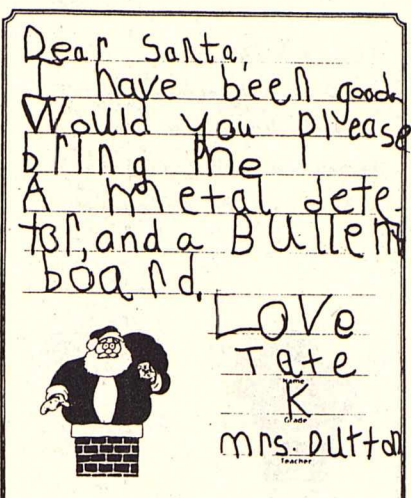 Dear Santa,
I have been good.
Would you please
bring me
A metal dete-
tor, and a Bulletn
board.
LOVe
Tate
Name
K
Grade
mrs. Dutton
Teacher